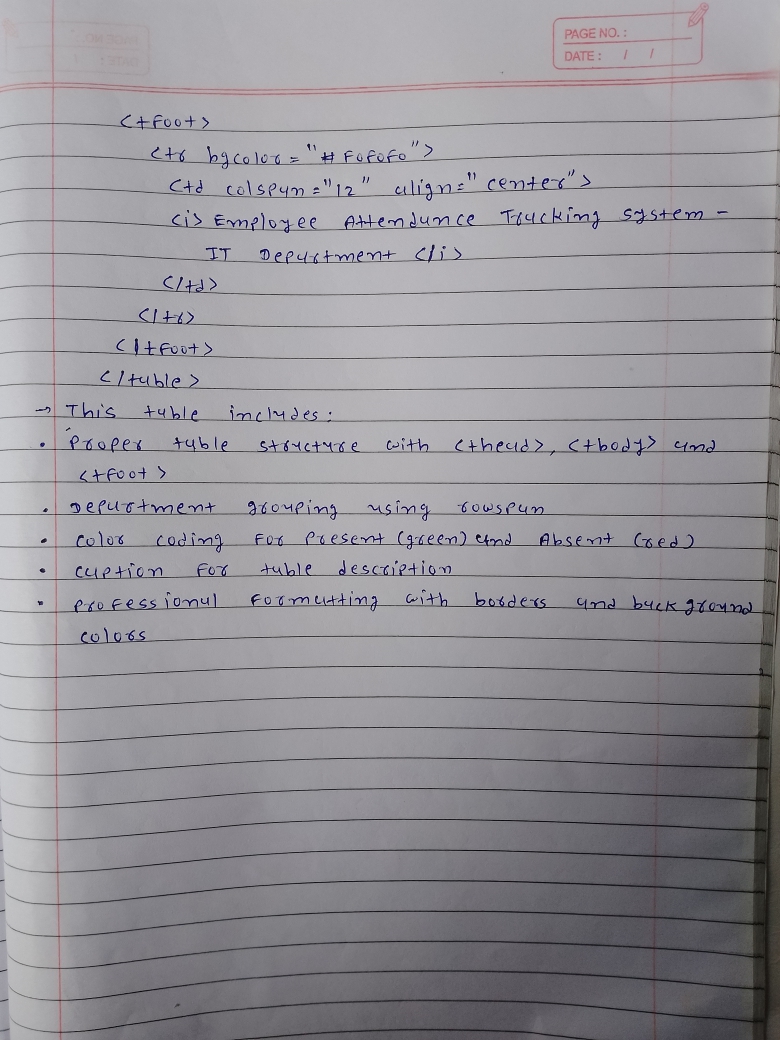 PAGE NO. :
DATE : / /
<tfoot>
<tr bgcolor = "# F0F0F0">
<td colspan = "12" align = "center">
<i> Employee Attendance Tracking system -
IT Department </i>
</td>
</tr>
</tfoot>
</table>
→ This table includes:
• Proper table structure with <thead>, <tbody> and
<tfoot>
• Department grouping using rowspan
• color coding For Present (green) and Absent (red)
• caption For table description
• professional Formatting with borders and background
colors